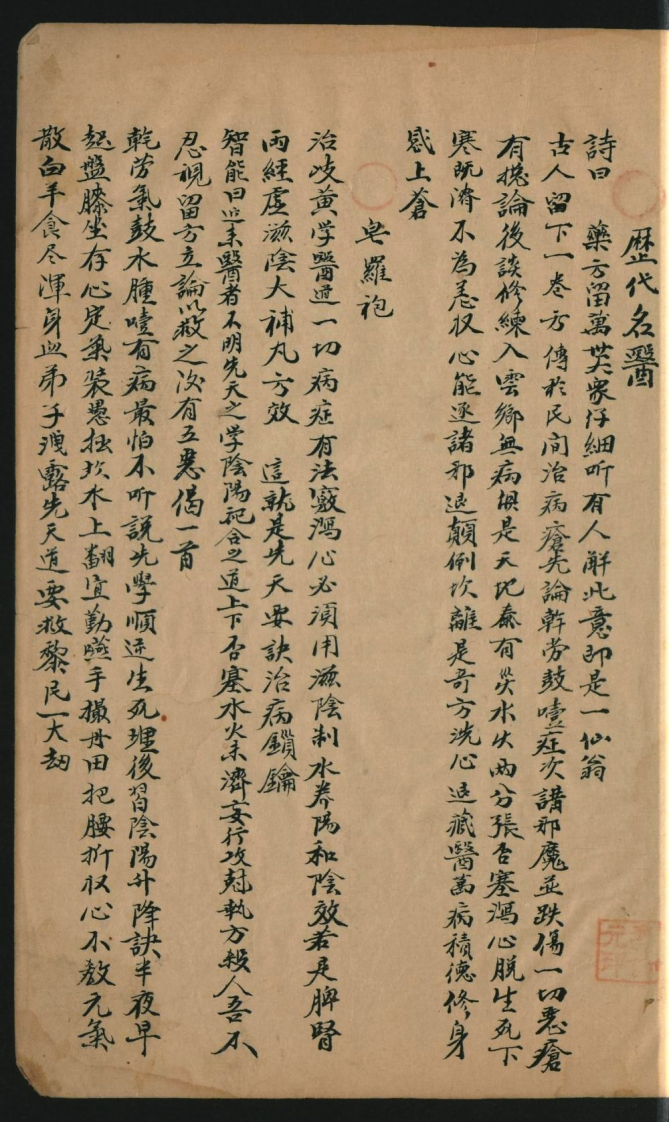 歷代名醫
詩曰　藥方留萬世衆仔細听有人解此意即是一仙翁
古人留下一卷方傳於民間治病瘡先論乾劳鼓噎症次講邪魔並跌傷一切惡瘡
有捴論後談修練入雲鄉無病俱是天地泰有災水火兩分張否塞瀉心脱生死下
寒既濟不為恙収心能逐諸邪退顛倒坎離是奇方洗心退藏醫萬病積德修身
感上蒼
皂羅袍
治岐黄学醫通一切病症有法竅瀉心必須用滋陰制水养陽和陰效若是脾腎
兩經虚滋陰大補丸方效　這就是先天要訣治病鎖鑰
智能曰近来醫者不明先天之学陰陽配合之道上下否塞水火未濟妄行攻尅執方殺人吾不
忍視留方立論以救之次有五惡偈一首
乾劳氣鼓水腫噎有病最怕不听説先學順逆生死理後習陰陽升降訣半夜早
起盤膝坐存心定氣装愚拙坎水上翻宜勤嚥手撮丹田把腰折収心不教元氣
散白羊食尽渾身血弟子洩露先天道要救黎民一大劫